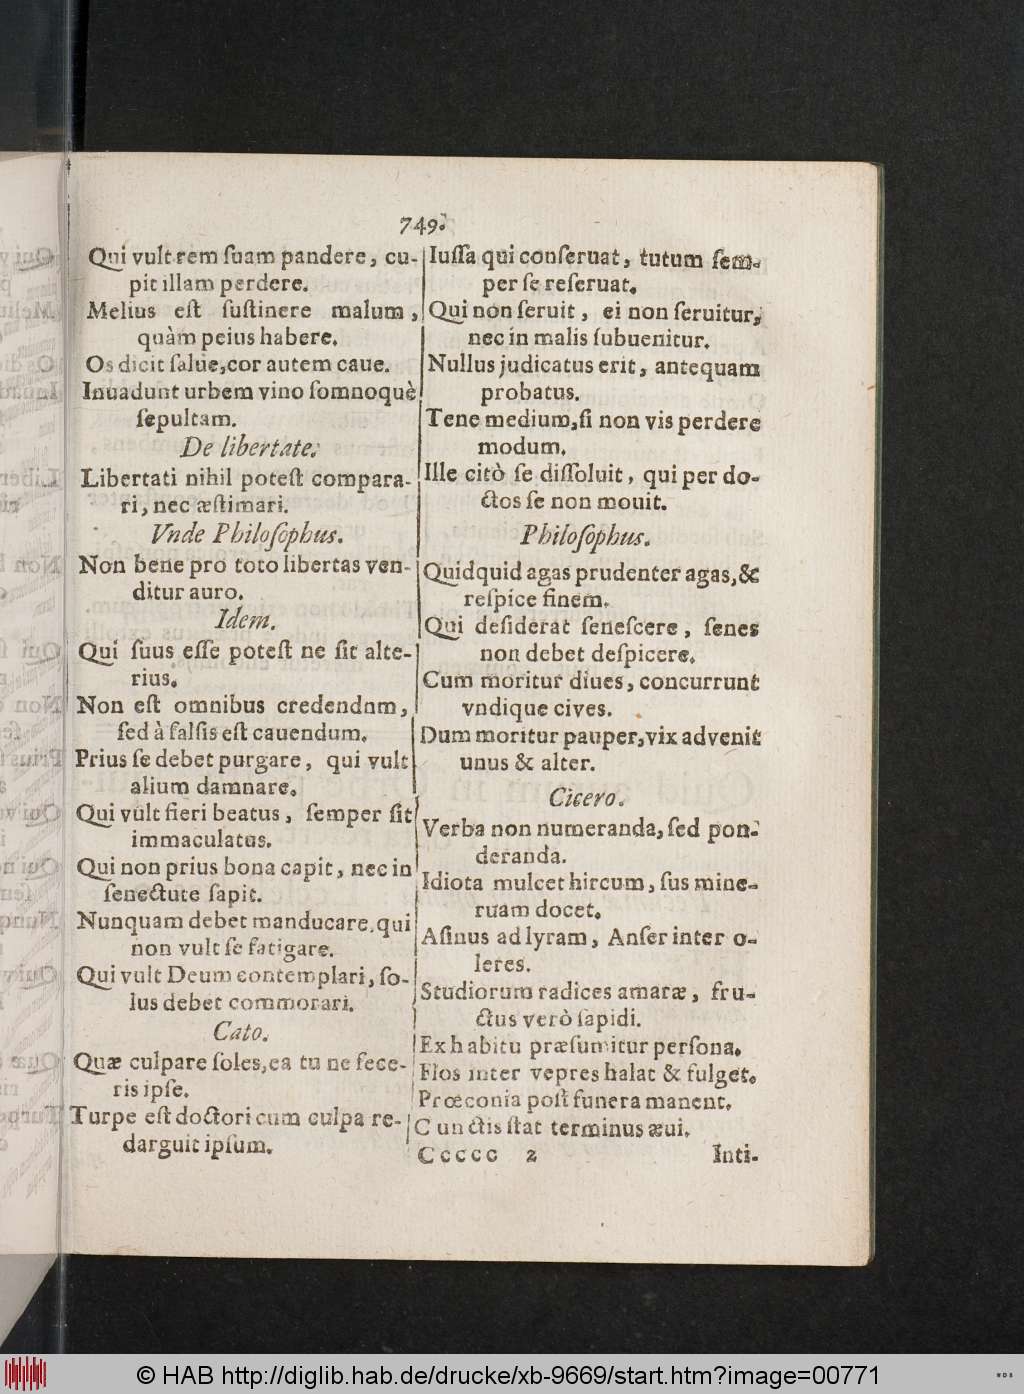 749.
Qui vult rem ſuam pandere, cu-
pit illam perdere.
Melius eſt ſuſtinere malum,
quàm peius habere.
Os dicit ſalue, cor autem caue.
Inuadunt urbem vino ſomnoquè
ſepultam.
De libertate.
Libertati nihil poteſt compara-
ri, nec æſtimari.
Vnde Philoſophus.
Non bene pro toto libertas ven-
ditur auro.
Idem.
Qui ſuus eſſe poteſt ne ſit alte-
rius.
Non eſt omnibus credendum,
ſed à falſis eſt cauendum.
Prius ſe debet purgare, qui vult
alium damnare.
Qui vult fieri beatus, ſemper ſit
immaculatus.
Qui non prius bona capit, nec in
ſenectute ſapit.
Nunquam debet manducare, qui
non vult ſe fatigare.
Qui vult Deum contemplari, ſo-
lus debet commorari.
Cato.
Quæ culpare ſoles, ea tu ne fece-
ris ipſe.
Turpe eſt doctori cum culpa re-
darguit ipſum.
Iuſſa qui conſeruat, tutum ſem-
per ſe reſeruat.
Qui non ſeruit, ei non ſeruitur,
nec in malis ſubuenitur.
Nullus judicatus erit, antequam
probatus.
Tene medium, ſi non vis perdere
modum.
Ille citò ſe diſſoluit, qui per do-
ctos ſe non mouit.
Philoſophus.
Quidquid agas prudenter agas, &
reſpice finem.
Qui deſiderat ſeneſcere, ſenes
non debet deſpicere.
Cum moritur diues, concurrunt
vndique cives.
Dum moritur pauper, vix advenit
unus & alter.
Cicero.
Verba non numeranda, ſed pon-
deranda.
Idiota mulcet hircum, ſus mine-
ruam docet.
Aſinus ad lyram, Anſer inter o-
leres.
Studiorum radices amaræ, fru-
ctus verò ſapidi.
Ex habitu præſumitur perſona.
Flos inter vepres halat & fulget.
Præconia poſt funera manent.
Cunctis ſtat terminus æui.
Ccccc 2 Inti-
© HAB http://diglib.hab.de/drucke/xb-9669/start.htm?image=00771